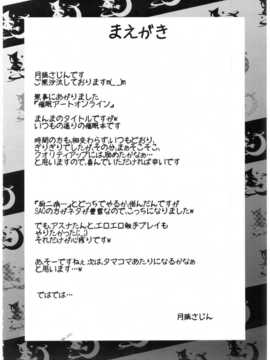 まえがき
月擴さじんです
ご無沙汰しておりますm(__)m
無事にあがりました
『催眠アートオンライン』
まんまのタイトルですがw
いつもの通りの催眠本です
時間の方も相変わらず、いつもどおり、
ぎりぎりでしたが、その分、まぁそこそこ、
クオリティアップには、努めたかなぁ…と
と思いますので、喜んでいただければ幸いです
とどっちでやるか、悩んだんですが
SAOの方がネタが豊富なので、こっちになりました
でも、アスナたんと、エロエロ触手プレイも
やりたかった(;_;)
それだけが心残りです
あ、そーですねぇ次は、タマコマあたりになるかなぁ
と思います…w
ではでは…
さじん